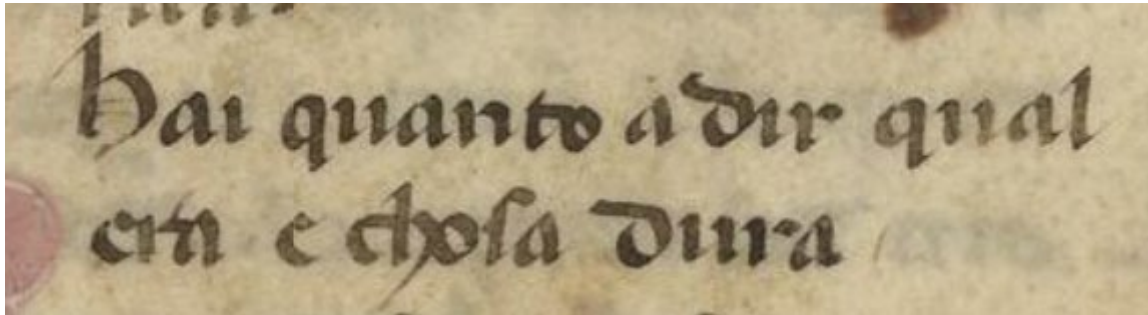 hai quanto a dir qual
era e chosa dura